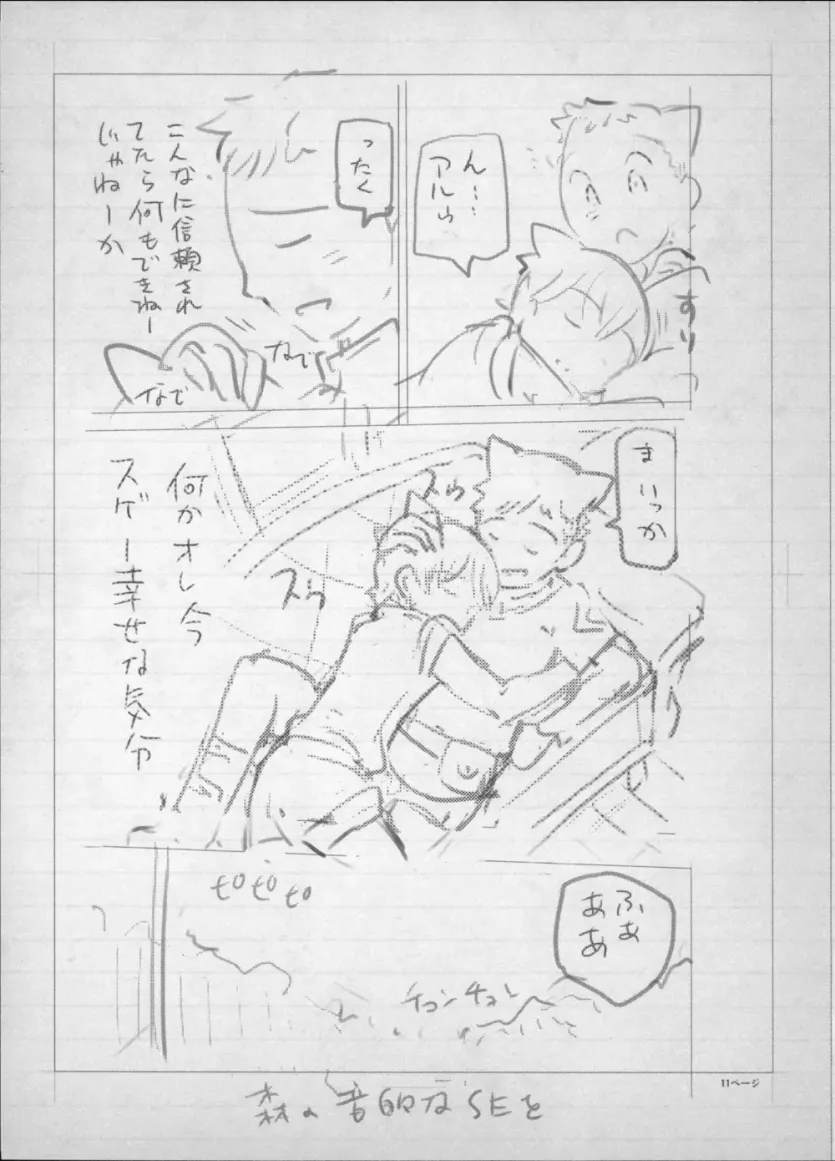 ん……
アルゥ
すり
ったく
こんなに信頼され
てたら何もできねー
じゃねーか
なで
なで
まいっか
スゥ
スゥ
何かオレ今
スゲー幸せな気分
ピピピ
ふぁ
ああ
チュンチュン
森の音的なSEを
11ページ